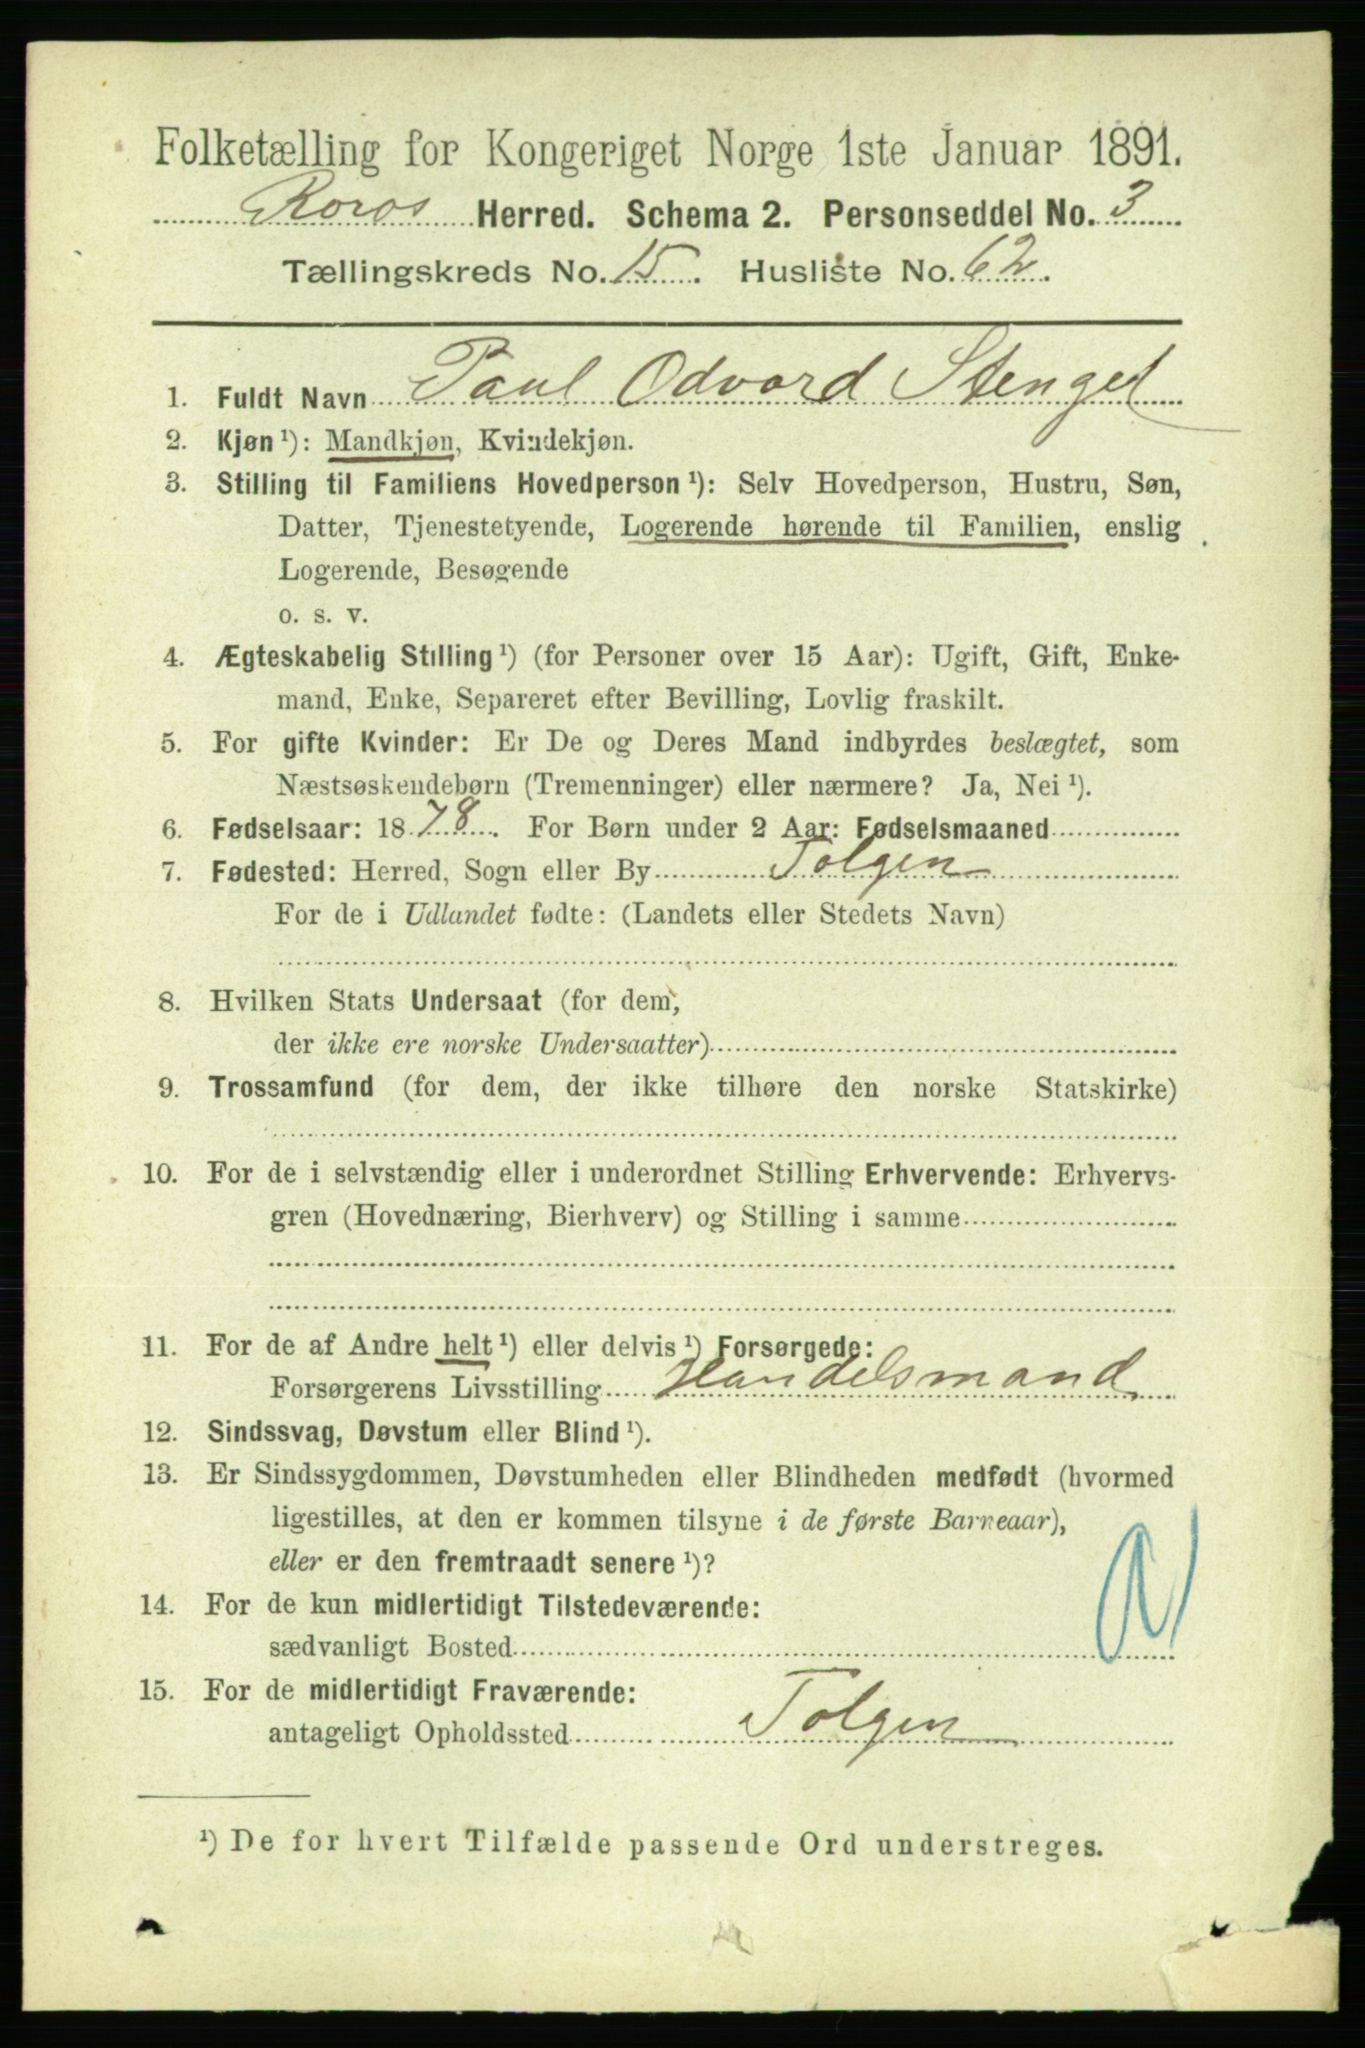 Folketælling for Kongeriget Norge 1ste Januar 1891.
Roros Herred. Schema 2. Personseddel No. 3
Tællingskreds No. 15. Husliste No. 62.
1. Fuldt Navn Paul Odvard Stengel
2. Kjøn ¹): Mandkjøn, Kvindekjøn.
3. Stilling til Familiens Hovedperson ¹): Selv Hovedperson, Hustru, Søn,
Datter, Tjenestetyende, Logerende hørende til Familien, enslig
Logerende, Besøgende
o. s. v.
4. Ægteskabelig Stilling ¹) (for Personer over 15 Aar): Ugift, Gift, Enke-
mand, Enke, Separeret efter Bevilling, Lovlig fraskilt.
5. For gifte Kvinder: Er De og Deres Mand indbyrdes beslægtet, som
Næstsøskendebørn (Tremenninger) eller nærmere? Ja, Nei ¹).
6. Fødselsaar: 1878. For Børn under 2 Aar: Fødselsmaaned
7. Fødested: Herred, Sogn eller By Tolgen
For de i Udlandet fødte: (Landets eller Stedets Navn)
8. Hvilken Stats Undersaat (for dem,
der ikke ere norske Undersaatter)
9. Trossamfund (for dem, der ikke tilhøre den norske Statskirke)
10. For de i selvstændig eller i underordnet Stilling Erhvervende: Erhvervs-
gren (Hovednæring, Bierhverv) og Stilling i samme
11. For de af Andre helt ¹) eller delvis ¹) Forsørgede:
Forsørgerens Livsstilling Handelsmand
12. Sindssvag, Døvstum eller Blind ¹).
13. Er Sindssygdommen, Døvstumheden eller Blindheden medfødt (hvormed
ligestilles, at den er kommen tilsyne i de første Barneaar),
eller er den fremtraadt senere ¹)?
14. For de kun midlertidigt Tilstedeværende:
sædvanligt Bosted
15. For de midlertidigt Fraværende:
antageligt Opholdssted Tolgen
¹) De for hvert Tilfælde passende Ord understreges.